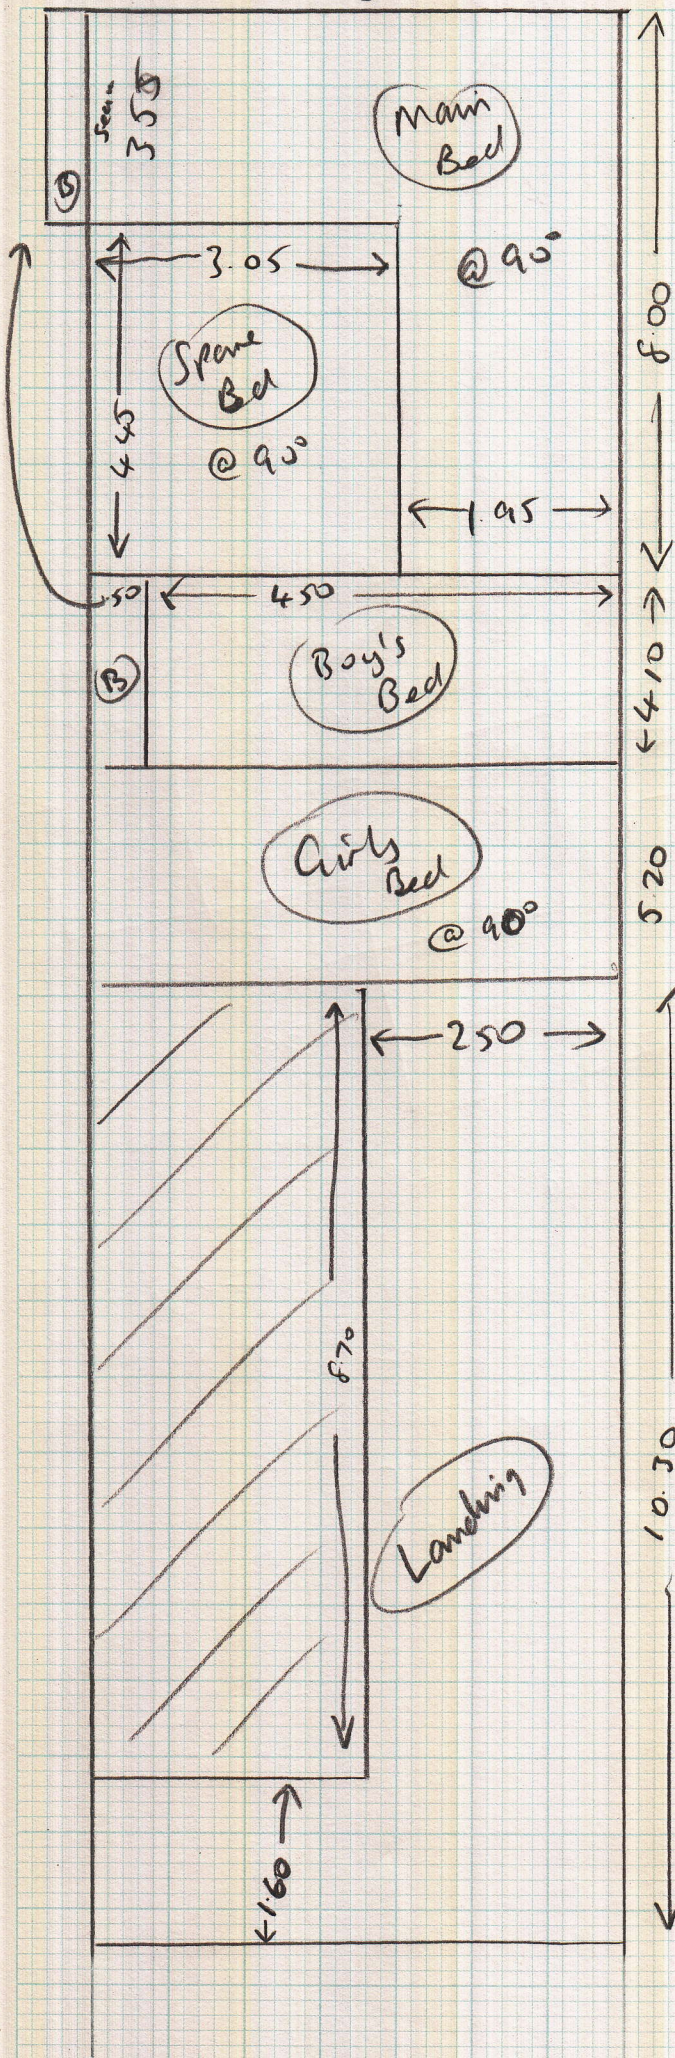 Seam
3 55
Main
Bed
B
3.05
@ 90°
8.00
Spare
Bed
4 45
@ 90°
1.95
.50
4 50
Boy's
Bed
B
4 10
Girls
Bed
@ 90°
5 20
2 50
8.70
Landing
10.30
1.60